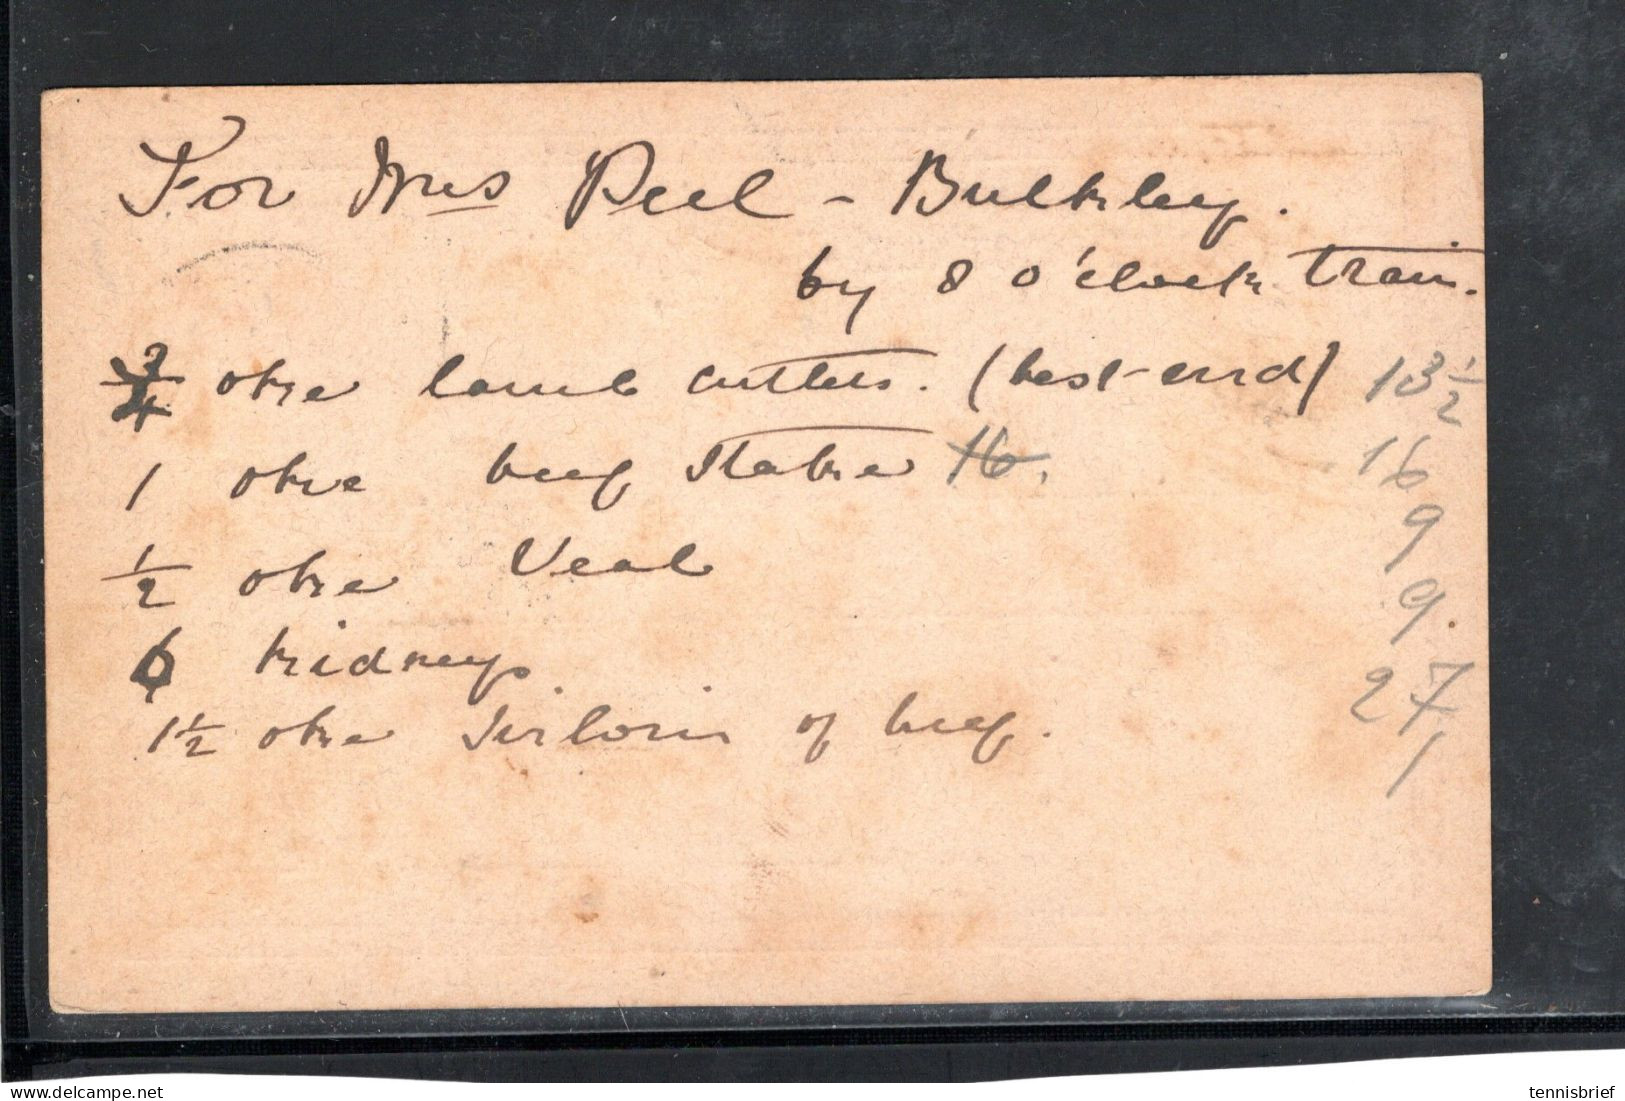 For Mrs Peel - Bulkley.
by 8 o'clock train.
3/4 oke lamb cutlets. (best-end) 13 1/2
1 oke beef steake 16. 16
1/2 oke Veal 9
6 kidneys 9.
1 1/2 oke Sirloin of beef. 27
delcampe.net
tennisbrief